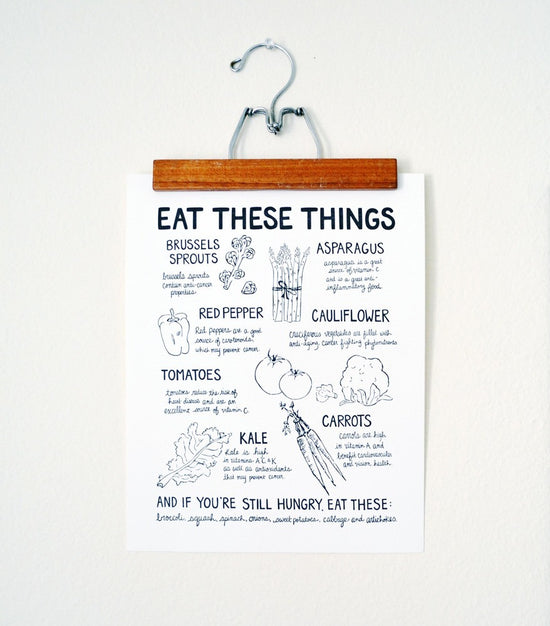 EAT THESE THINGS
BRUSSELS
SPROUTS
brussels sprouts
contain anti-cancer
properties.
ASPARAGUS
asparagus is a great
source of vitamin C
and is a great anti-
inflammatory food.
RED PEPPER
Red peppers are a good
source of carotenoids,
which may prevent cancer.
CAULIFLOWER
Cruciferous vegetables are filled with
anti-aging, cancer fighting phytonutrients
TOMATOES
tomatoes reduce the risk of
heart disease and are an
excellent source of vitamin C.
KALE
Kale is high
in vitamins A, C & K
as well as antioxidants
that may prevent cancer.
CARROTS
Carrots are high
in vitamin A and
benefit cardiovascular
and vision health.
AND IF YOU'RE STILL HUNGRY, EAT THESE:
broccoli, squash, spinach, onions, sweet potatoes, cabbage and artichokes.